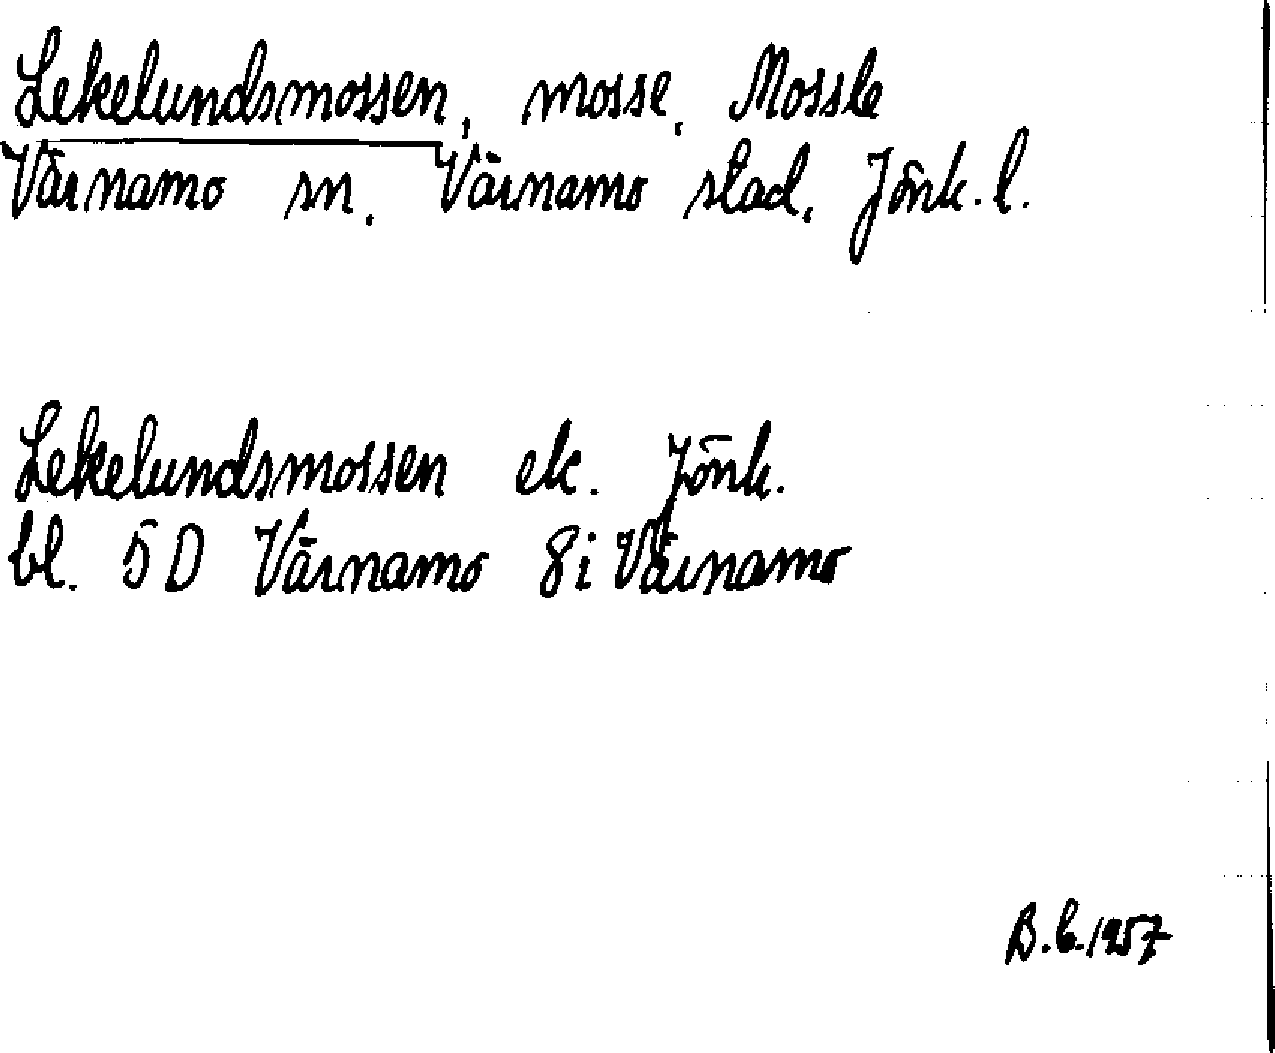 Lekelundsmossen, mosse, Mossle
Värnamo sn. Värnamo stad, Jönk. l.
Lekelundsmossen ek. Jönk.
bl. 5 D Värnamo 8i Värnamo
1957